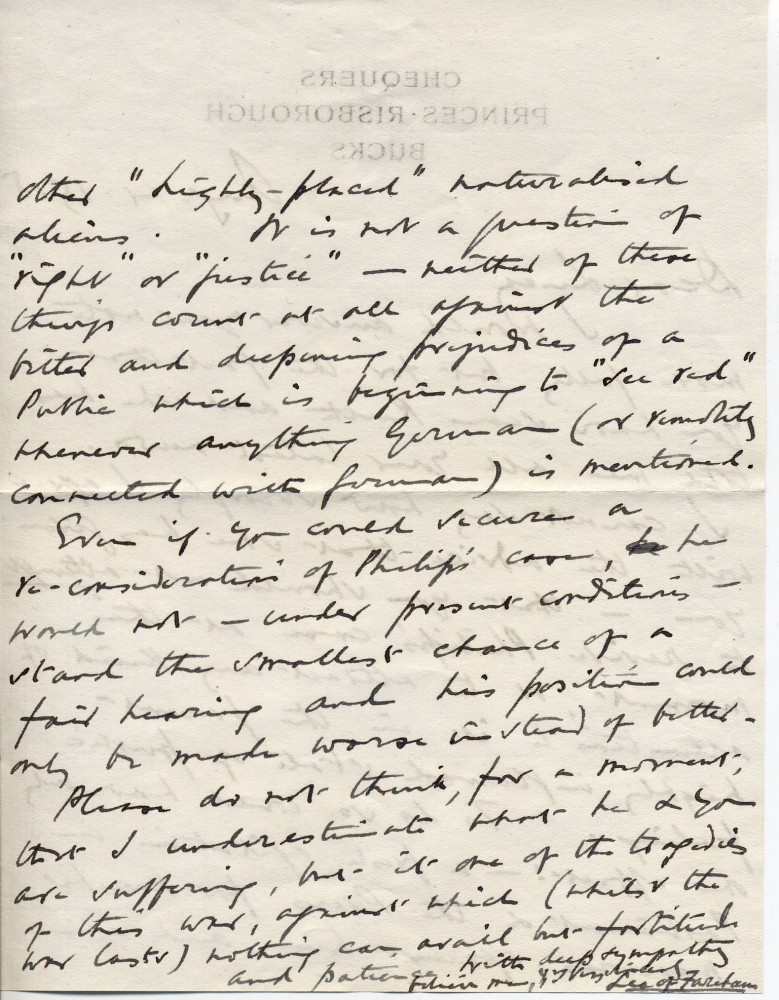 CHEQUERS
PRINCES·RISBOROUGH
BUCKS
other "highly-placed" naturalised
aliens. It is not a question of
"right" or "justice" — neither of these
things count at all against the
bitter and deepening prejudices of a
Public which is beginning to "see red"
whenever anything German (or remotely
connected with German) is mentioned.
Even if you could secure a
re-consideration of Philip's case, he
would not — under present conditions —
stand the smallest chance of a
fair hearing and his position could
only be made worse instead of better.
Please do not think, for a moment,
that I underestimate what he & you
are suffering, but it one of the tragedies
of this war, against which (whilst the
war lasts) nothing can avail but fortitude
and patience. With deep sympathy
Believe me, Yrs very sincerely
Lee of Fareham